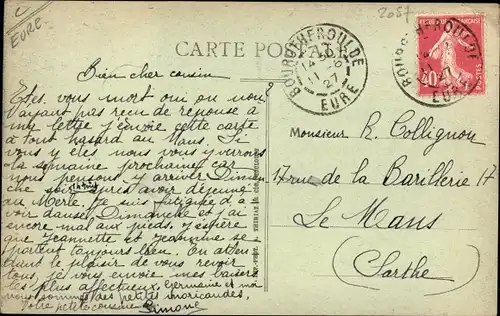 C
EURE
2057
CARTE POSTALE
BOURGTHEROULDE
11
27
EURE
BOURGTHEROULDE
11
27
EURE
40
POSTES
Bien cher cousin
Etes. vous mort oui ou non?
N'ayant pas reçu de réponse à
my lettre j'envoie cette carte
à tout hasard au Mans. Si
vous y êtes nous vous y verrons
la semaine prochaine car
nous pensons y arriver Diman
che soir après avoir déjeuné
au Merle. Je suis fatiguée d'a
voir dansé Dimanche et j'ai
encore mal aux pieds. J'espère
que Jeannette et Jeannine se
portent toujours bien. En atten
dant le plaisir de vous revoir
tous, je vous envoie mes baisers
les plus affectueux. Germaine et moi
nous sommes des petites moricaudes.
Votre petite cousine
Simone
Monsieur R. Collignon
17 rue de la Barillerie 17
Le Mans
(Sarthe)